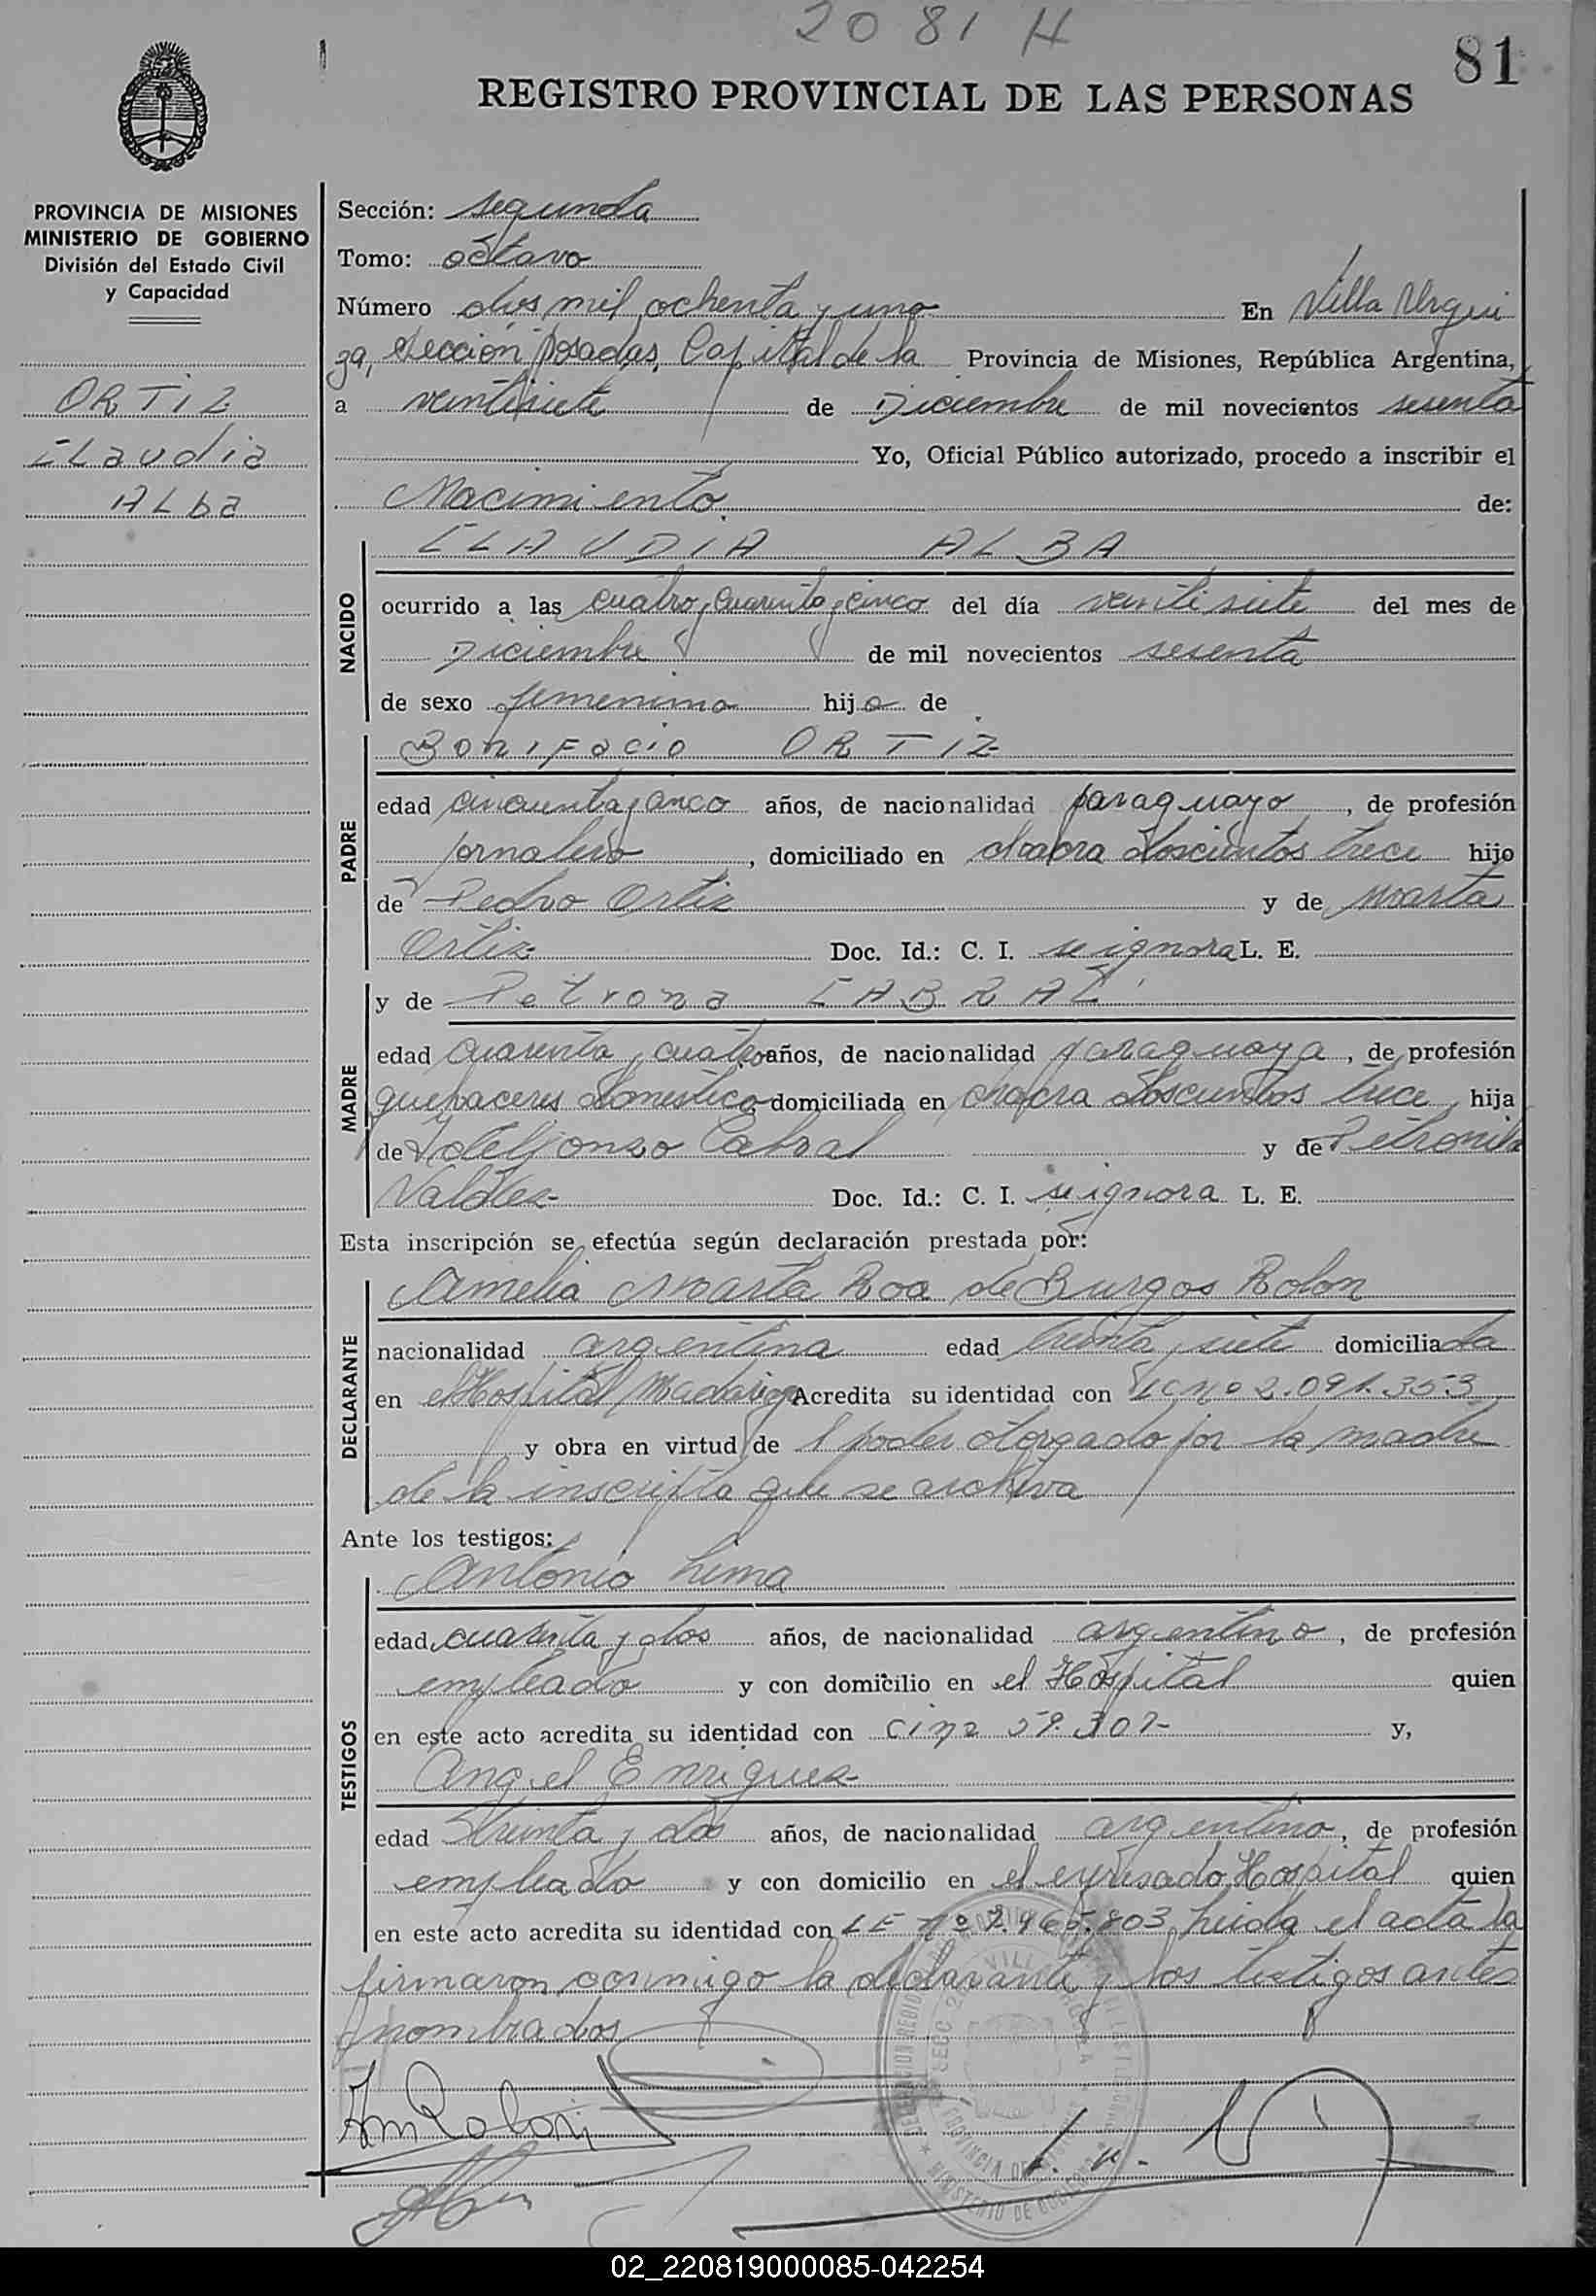 2081 H
81
REGISTRO PROVINCIAL DE LAS PERSONAS
PROVINCIA DE MISIONES
MINISTERIO DE GOBIERNO
División del Estado Civil
y Capacidad
ORTIZ
CLaudia
ALba
Sección: segunda
Tomo: octavo
Número dos mil ochenta y uno En Villa Urqui
za, Sección Posadas, Capital de la Provincia de Misiones, República Argentina,
a veintisiete de Diciembre de mil novecientos sesenta
Yo, Oficial Público autorizado, procedo a inscribir el
Nacimiento de:
NACIDO
CLAUDIA ALBA
ocurrido a las cuatro y cuarenta y cinco del día veintisiete del mes de
Diciembre de mil novecientos sesenta
de sexo femenino hija de
PADRE
Bonifacio ORTIZ
edad cincuenta y cinco años, de nacionalidad paraguayo, de profesión
jornalero, domiciliado en chacra doscientos trece hijo
de Pedro Ortiz y de Marta
Ortiz Doc. Id.: C. I. se ignora L. E.
MADRE
y de Petrona CABRAL
edad cuarenta y cuatro años, de nacionalidad paraguaya, de profesión
quehaceres domestico domiciliada en chacra doscientos trece, hija
de Ildelfonso Cabral y de Petronila
Valdez Doc. Id.: C. I. se ignora L. E.
Esta inscripción se efectúa según declaración prestada por:
DECLARANTE
Amelia Marta Roa de Burgos Rolon
nacionalidad argentina edad treinta y siete domiciliada
en el Hospital Madariaga Acredita su identidad con 2.091.353
y obra en virtud de 1 poder otorgado por la madre
de la inscripta que se archiva
Ante los testigos:
TESTIGOS
Antonio Lima
edad cuarenta y dos años, de nacionalidad argentino, de profesión
empleado y con domicilio en el Hospital quien
en este acto acredita su identidad con CI nº y,
Angel Enriquez
edad treinta y dos años, de nacionalidad argentino, de profesión
empleado y con domicilio en el expresado Hospital quien
en este acto acredita su identidad con LE nº 7.465.803 leida el acta la
firmaron conmigo la declarante y los testigos antes
nombrados
02_220819000085-042254